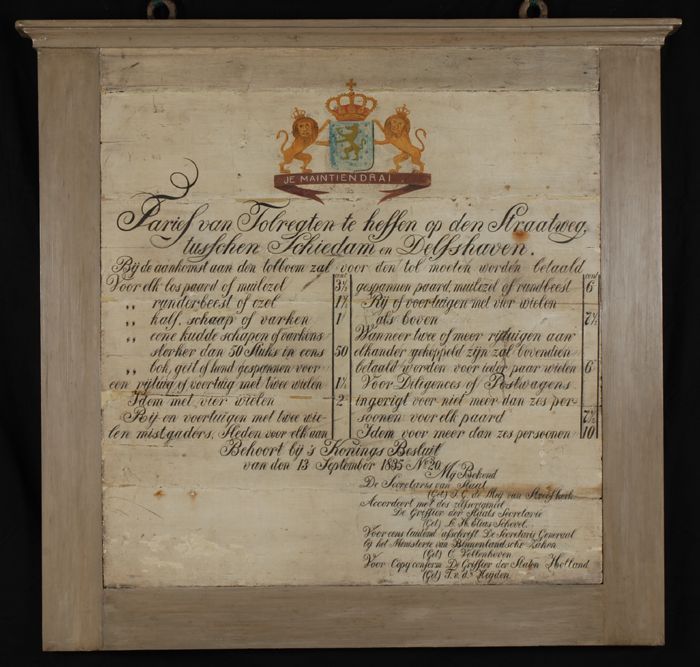 JE MAINTIENDRAI.
Tarief van Tolregten te heffen op den Straatweg,
tusschen Schiedam en Delfshaven.
Bij de aankomst aan den tolboom zal voor den tol moeten worden betaald
cent
Voor elk los paard of muilezel 3½
„ runderbeest of ezel 1½
„ kalf, schaap of varken 1
„ eene kudde schapen of varkens
sterker dan 50 Stuks in eens 50
„ bok, geit of hond gespannen voor
een rijtuig of voertuig met twee wielen 1½
Idem met vier wielen 2
Rij en voertuigen met twee wie-
len mistgaders, Sleden voor elk aan
cent
gespannen paard, muilezel of rundbeest 6
Rij of voertuigen met vier wielen
als boven 7½
Wanneer twee of meer rijtuigen aan
elkander gekoppeld zijn zal bovendien
betaald worden voor ieder paar wielen 6
Voor Diligences of Postwagens
ingerigt voor niet meer dan zes per-
soonen voor elk paard 7½
Idem voor meer dan zes persoonen 10
Behoort bij 's Konings Besluit
van den 13 September 1835 No 20
Mij Bekend
De Secretaris van Staat
(Get) J. G. de Meij van Streefkerk
Accordeert met des zelfs
De Griffier der Staats Secretarie
(Get) L. H. Elias Schovel.
Voor eensluidend afschrift De Secretaris Generaal
bij het Ministerie van Binnenlandsche Zaken
(Get) C. Vollenhoven
Voor Copy conform De Griffier der Staten Holland
(Get) T. v. d. Heyden